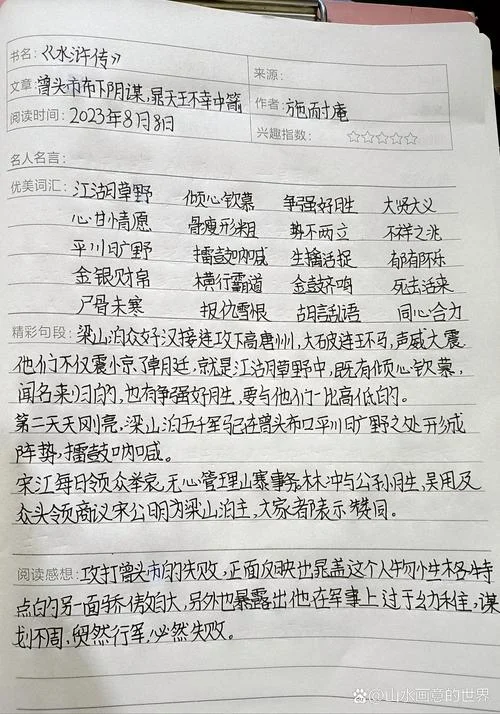 书名：《水浒传》
来源：
文章：曾头市布下阴谋，晁天王不幸中箭
作者：施耐庵
阅读时间：2023年8月8日
兴趣指数：☆☆☆☆☆
名人名言：
优美词汇：江湖草野 倾心钦慕 争强好胜 大贤大义
心甘情愿 骨瘦形粗 势不两立 不祥之兆
平川旷野 擂鼓呐喊 生擒活捉 郁郁不乐
金银财帛 横行霸道 金鼓齐鸣 死去活来
尸骨未寒 报仇雪恨 胡言乱语 同心合力
精彩句段：梁山泊众好汉接连攻下高唐州，大破连环马，声威大震
他们不仅震惊了朝廷，就是江湖草野中，既有倾心钦慕，
闻名来归的，也有争强好胜，要与他们一比高低的。
第二天天刚亮，梁山泊五千军马已在曾头市口平川旷野之处形成
阵势，擂鼓呐喊。
宋江每日领众举哀，无心管理山寨事务林冲与公孙胜，吴用及
众头领商议宋公明为梁山泊主，大家都表示赞同。
阅读感想：攻打曾头市的失败，正面反映出晁盖这个人物性格特
点的另一面骄傲自大，另外也暴露出他在军事上过于幼稚，谋
划不周，贸然行军，必然失败。
山水画意的世界